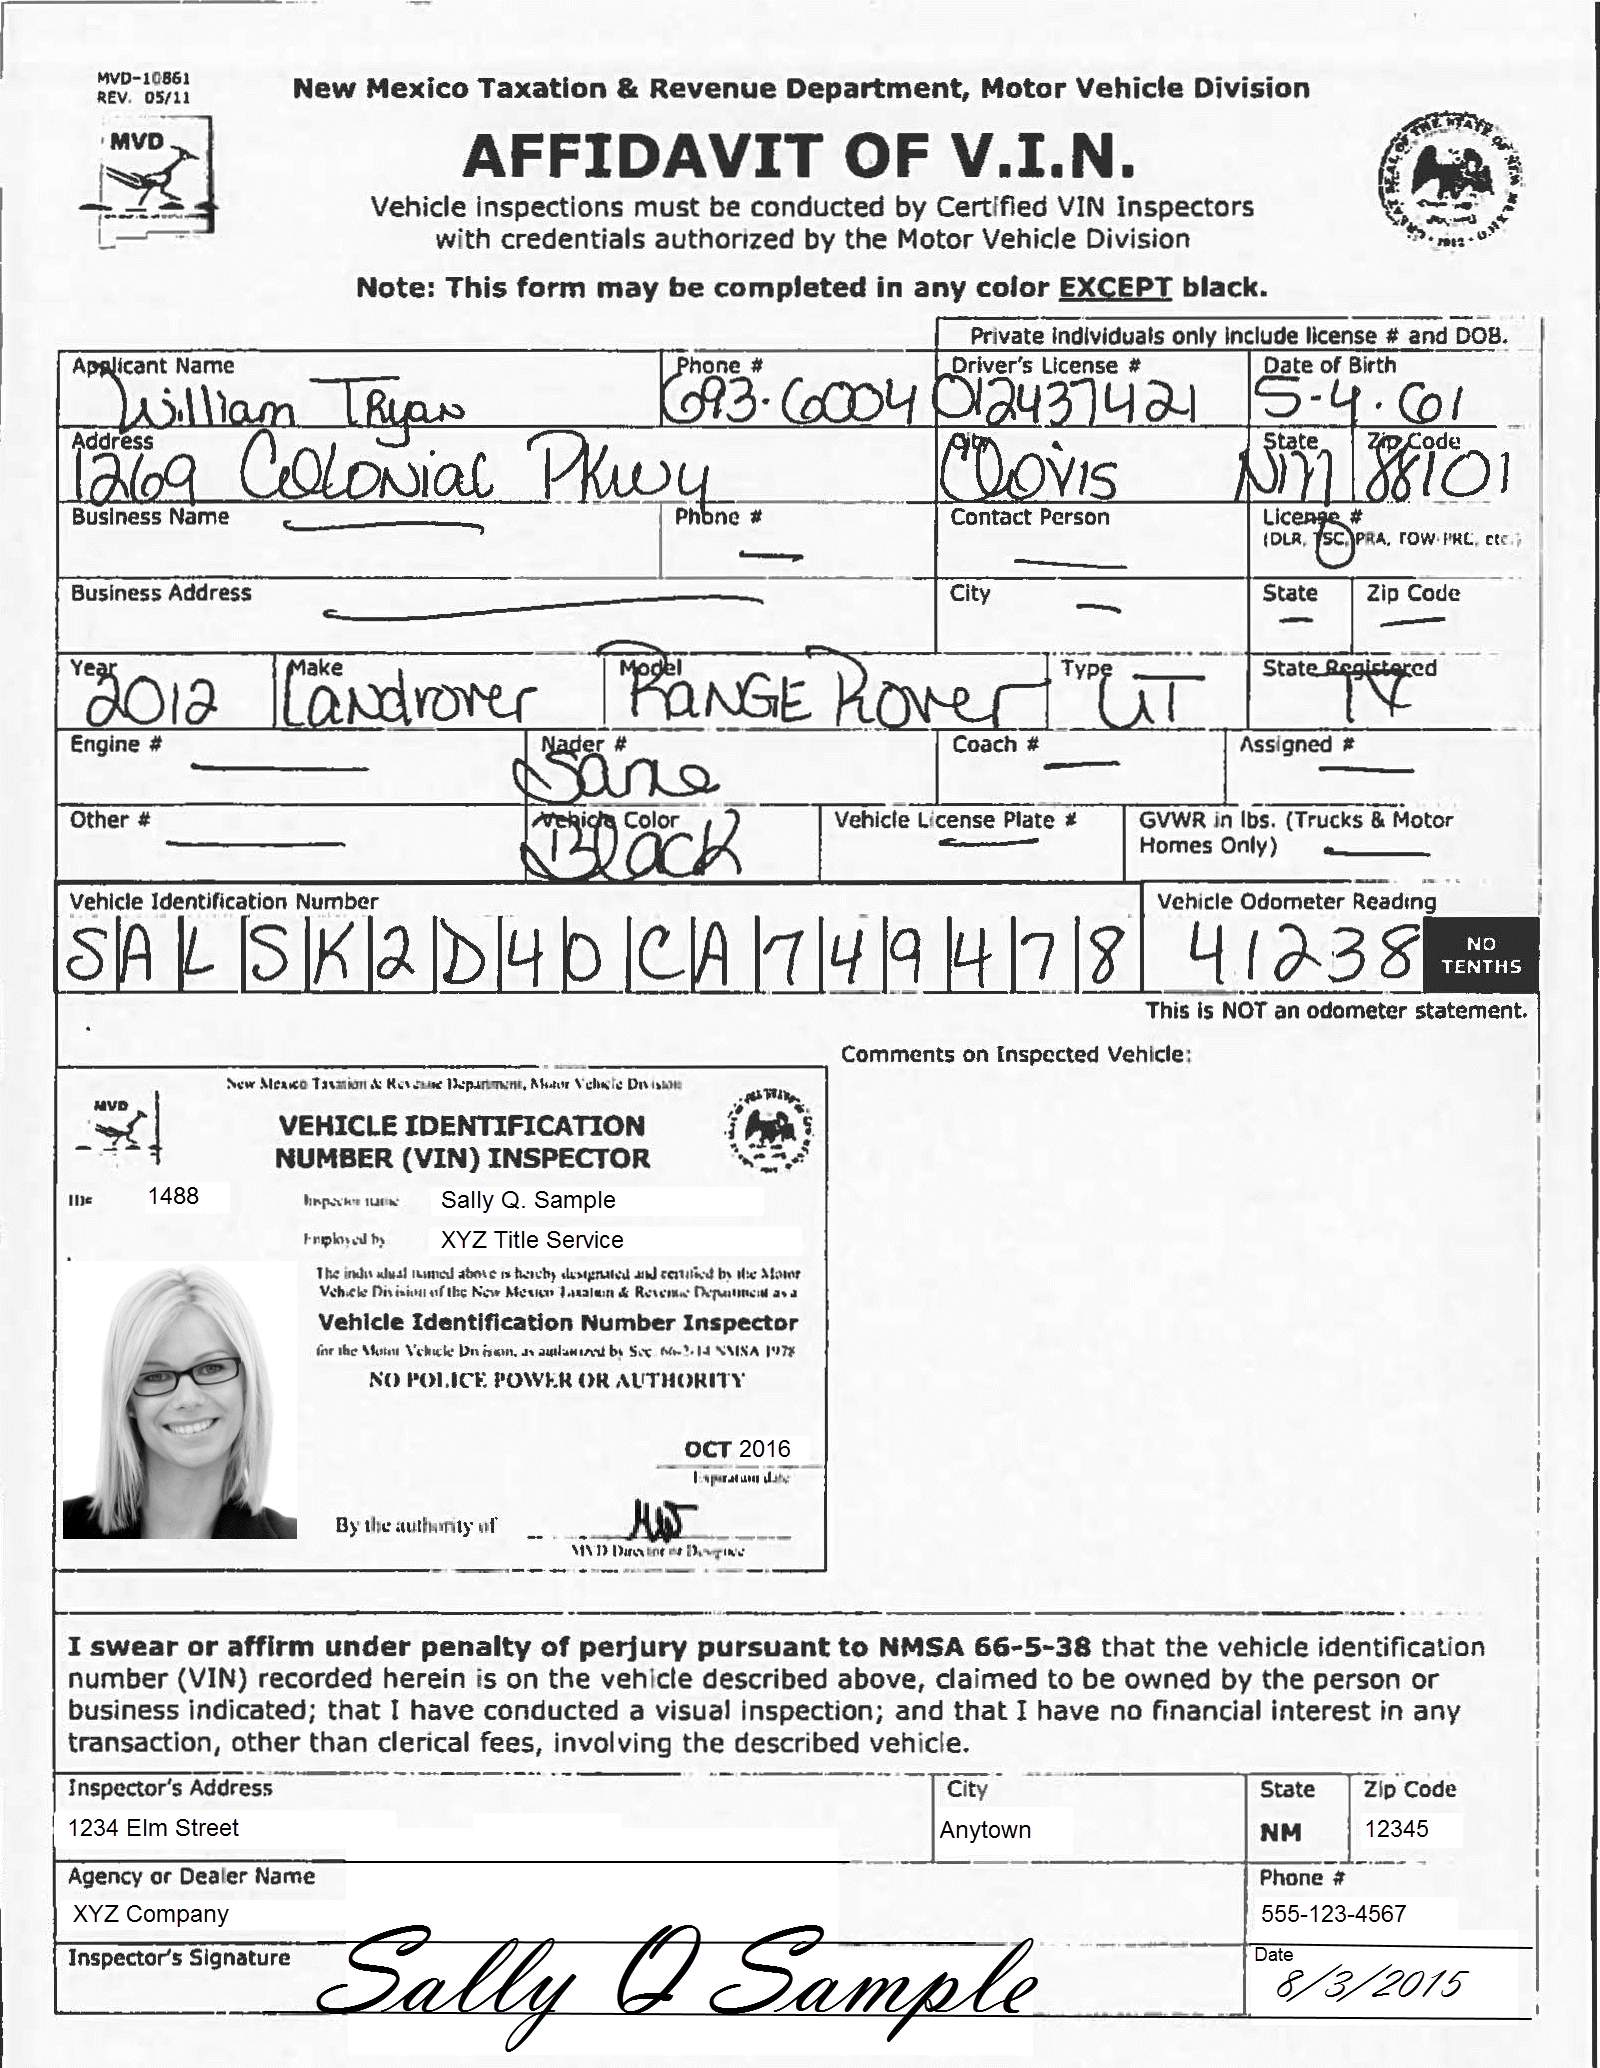 MVD-10861
REV. 05/11
New Mexico Taxation & Revenue Department, Motor Vehicle Division
MVD
AFFIDAVIT OF V.I.N.
Vehicle inspections must be conducted by Certified VIN Inspectors
with credentials authorized by the Motor Vehicle Division
Note: This form may be completed in any color EXCEPT black.
Private individuals only include license # and DOB.
Applicant Name Phone # Driver's License # Date of Birth
William Tryan 693-6004 012437421 5-4-61
Address City State Zip Code
1269 Colonial Pkwy Clovis NM 88101
Business Name Phone # Contact Person License #
(DLR, TSC, PRA, TOW-PRC, etc.)
Business Address City State Zip Code
Year Make Model Type State Registered
2012 Landrover RANGE Rover UT TX
Engine # Nader # Coach # Assigned #
Same
Other # Vehicle Color Vehicle License Plate # GVWR in lbs. (Trucks & Motor
Homes Only)
Black
Vehicle Identification Number Vehicle Odometer Reading
SALSK2D40CA749478 41238 NO
TENTHS
This is NOT an odometer statement.
Comments on Inspected Vehicle:
New Mexico Taxation & Revenue Department, Motor Vehicle Division
MVD
VEHICLE IDENTIFICATION
NUMBER (VIN) INSPECTOR
ID# 1488 Inspector name Sally Q. Sample
Employed by XYZ Title Service
The individual named above is hereby designated and certified by the Motor
Vehicle Division of the New Mexico Taxation & Revenue Department as a
Vehicle Identification Number Inspector
for the Motor Vehicle Division, as authorized by Sec. 66-2-14 NMSA 1978
NO POLICE POWER OR AUTHORITY
OCT 2016
Expiration date
By the authority of
MVD Director or Designee
I swear or affirm under penalty of perjury pursuant to NMSA 66-5-38 that the vehicle identification
number (VIN) recorded herein is on the vehicle described above, claimed to be owned by the person or
business indicated; that I have conducted a visual inspection; and that I have no financial interest in any
transaction, other than clerical fees, involving the described vehicle.
Inspector's Address City State Zip Code
1234 Elm Street Anytown NM 12345
Agency or Dealer Name Phone #
XYZ Company 555-123-4567
Inspector's Signature Date
Sally Q Sample 8/3/2015